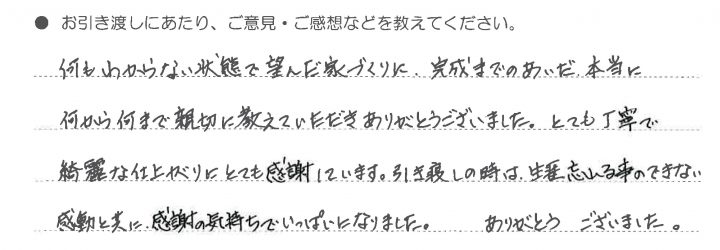 ● お引き渡しにあたり、ご意見・ご感想などを教えてください。
何もわからない状態で望んだ家づくりに、完成までのあいだ、本当に
何から何まで親切に教えていただきありがとうございました。とても丁寧で
綺麗な仕上がりにとても感謝しています。引き寝しの時は、生涯忘れる事のできない
感動と共に、感謝の気持ちでいっぱいになりました。 ありがとう ございました。